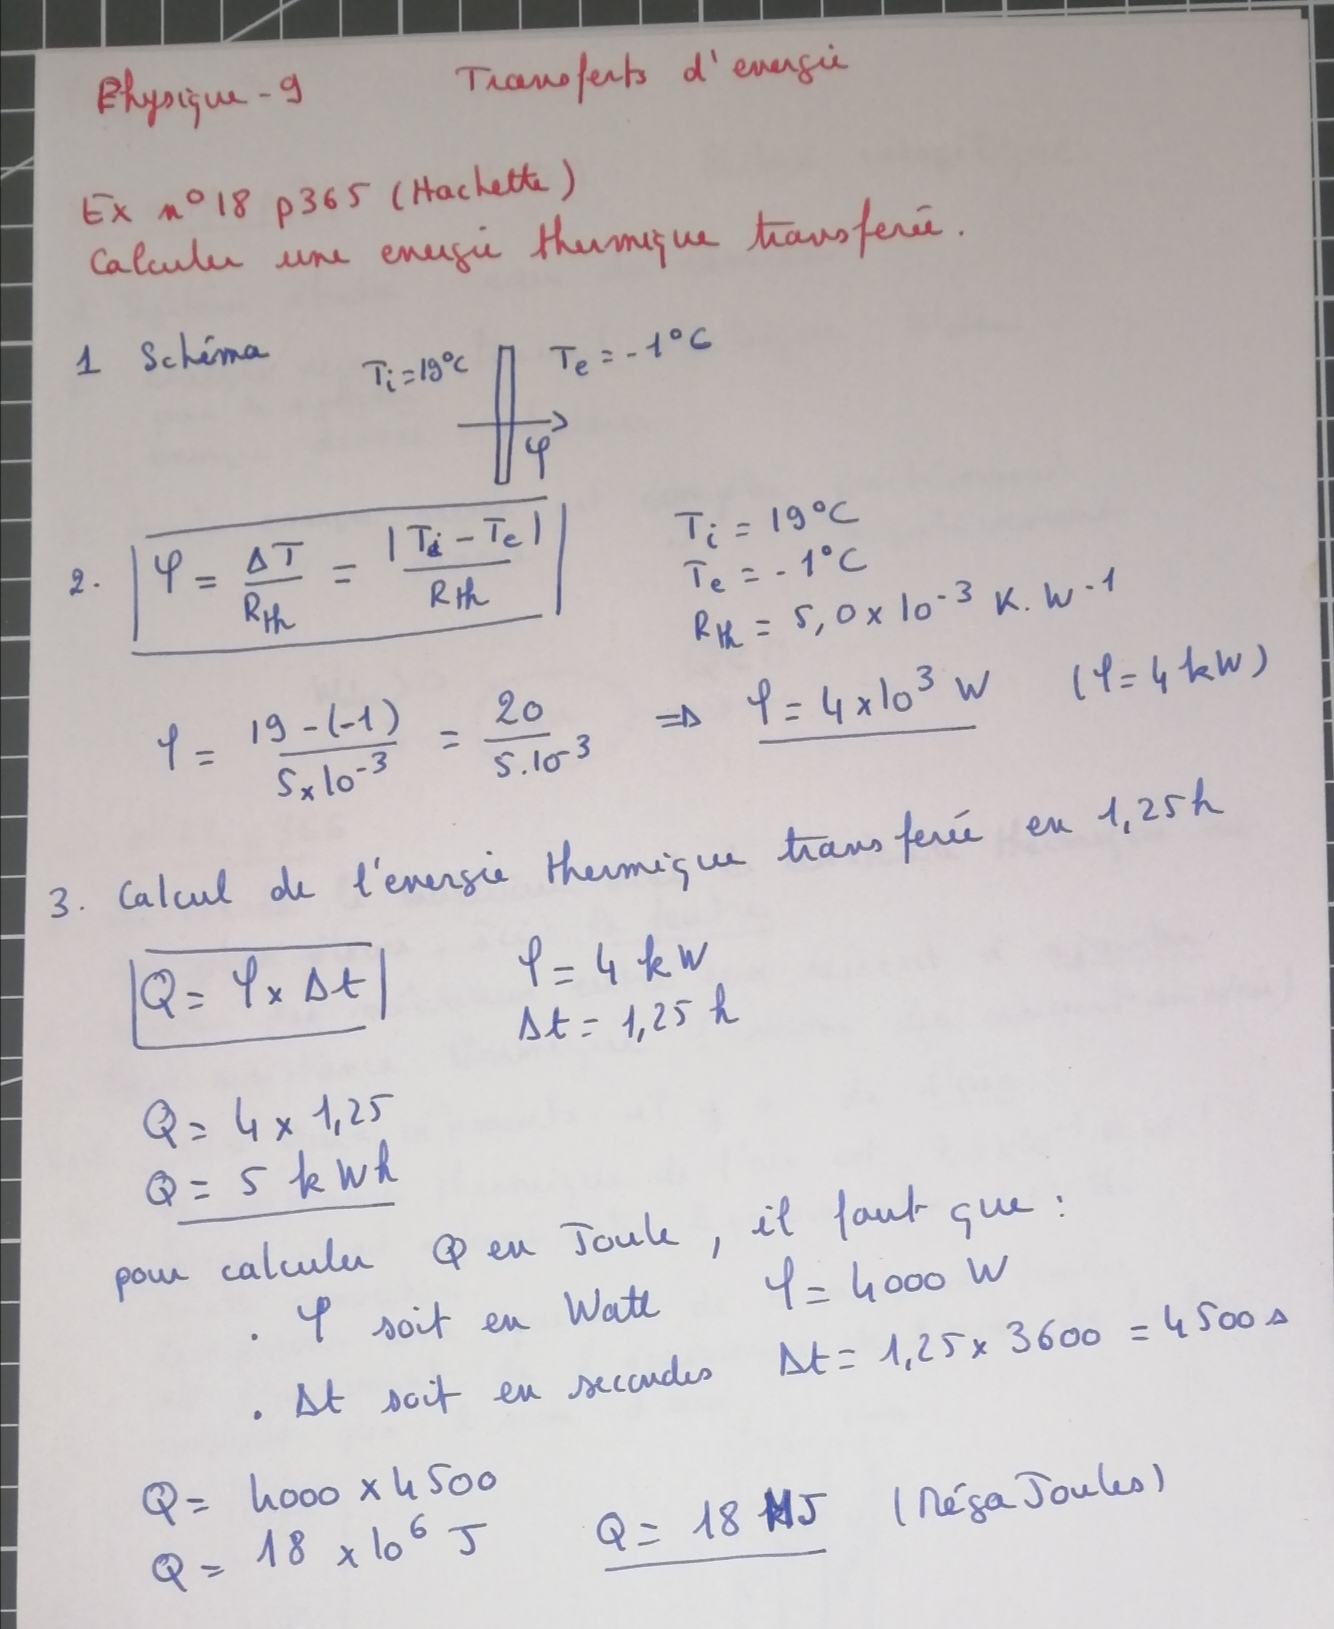 Physique-9 Transferts d'energie
Ex n°18 p365 (Hachette)
Calculer une energie thermique transferée.
1 Schéma Ti=19°C Te=-1°C
φ
2. φ = ΔT/Rth = |Ti - Te|/Rth
Ti = 19°C
Te = -1°C
Rth = 5,0 x 10^-3 K.W^-1
φ = 19-(-1)/5x10^-3 = 20/5.10^-3 ⇒ φ = 4x10^3 W (φ=4kW)
3. Calcul de l'énergie thermique transferée en 1,25h
Q = φ x Δt
φ = 4 kW
Δt = 1,25 h
Q = 4 x 1,25
Q = 5 kWh
pour calculer Q en Joule, il faut que :
. φ soit en Watt φ = 4000 W
. Δt soit en secondes Δt = 1,25 x 3600 = 4500 s
Q = 4000 x 4500
Q = 18 x 10^6 J Q = 18 MJ (MégaJoules)